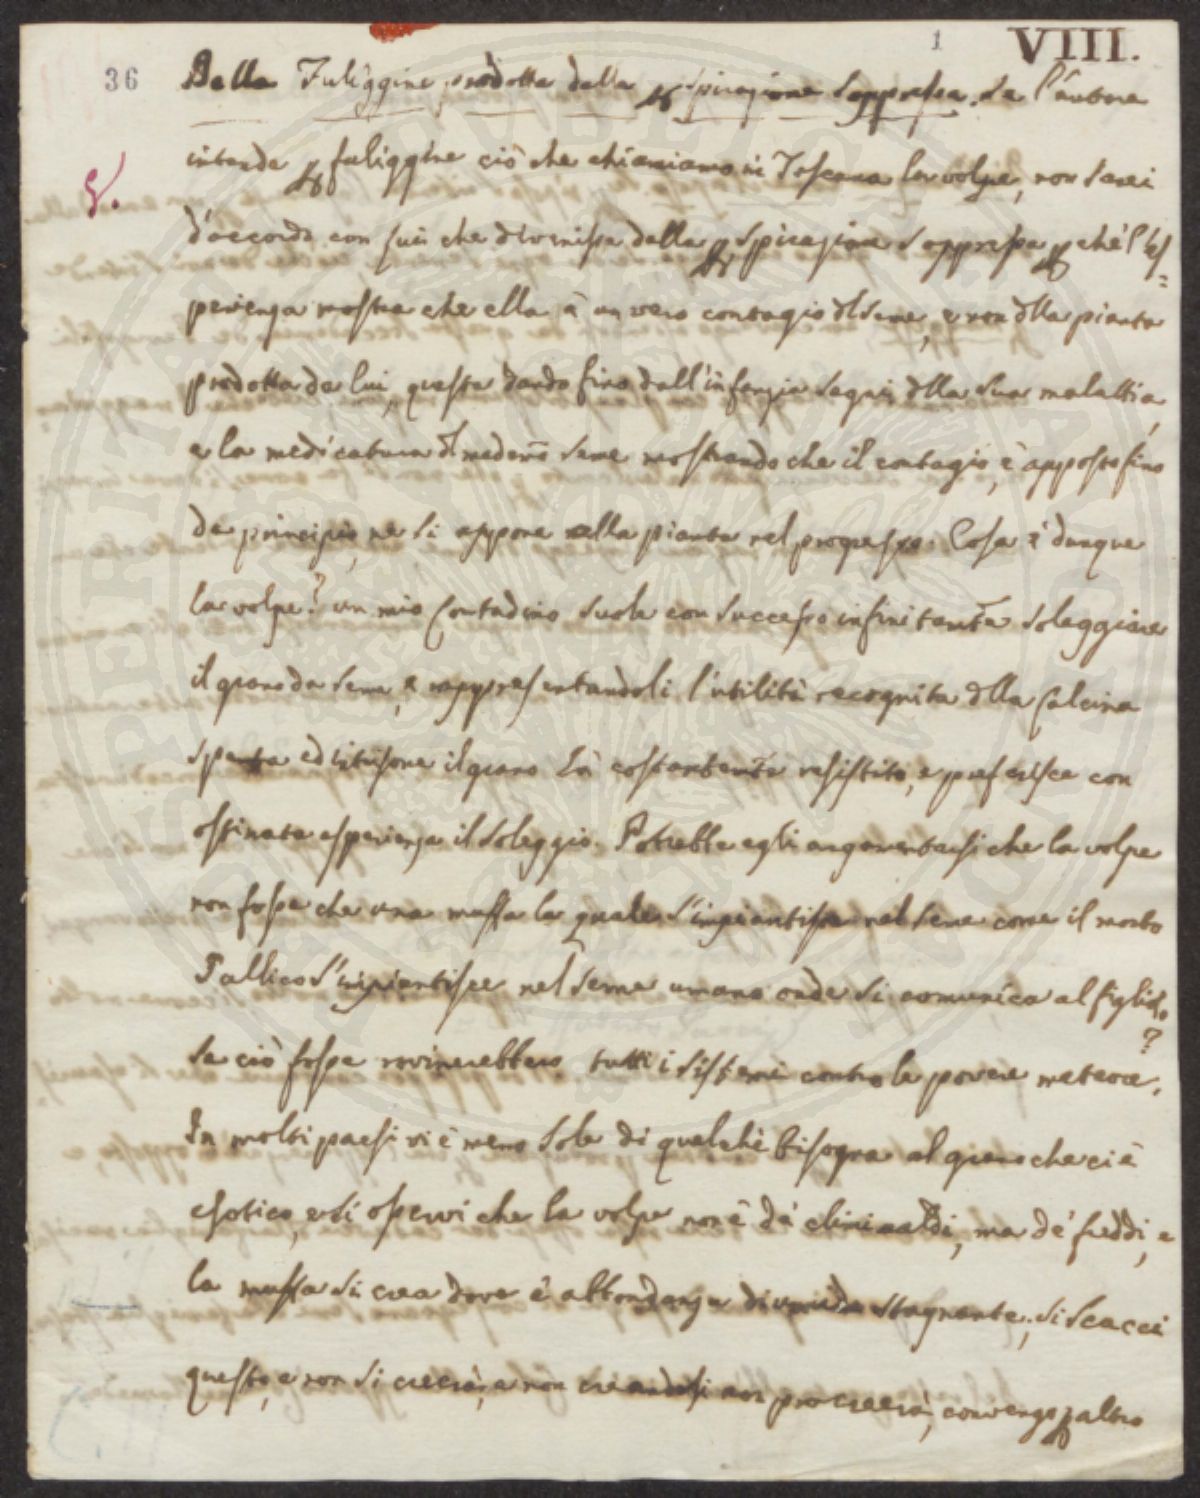 1 VIII.
36 Della Fuliggine prodotta dalla pspirazione soppressa. Se l'autore
intende p fuliggine ciò che chiamiamo in Toscana la volpe, non sarei
d'accordo con lui che divenisse dalla pspirazione soppressa pchè l'es=
perienza mostra che ella è un vero contagio dl seme, e non dlla pianta
prodotta da lui, questa dando fino dall'infanzia segni dlla sua malattia,
e la medicatura dl medemo seme mostrando che il contagio, è apposto fino
da principio, ne si appone alla pianta nel progresso. Cosa è dunque
la volpe? un mio Contadino suole con successo infinitamte soleggiare
il grano da seme, e rappresentandoli l'utilità recognita dlla Calcina
spenta ed il grano hà costantemte resistito, e preferisce con
ostinata esperienza il soleggio. Potrebbe egli argomentarsi che la volpe
non fosse che una muffa la quale s'impiantisse nel seme come il morbo
Gallico s'impiantisce nel seme umano onde si comunica al figlio?
Se ciò fosse rovinerebbero tutti i sistemi contro le povere meteore.
In molti paesi vi è meno sole di quelche bisogna al grano che ci è
esotico, e si osservi che la volpe non è dè climi caldi, ma dè freddi, e
la muffa si crea dove è abbondanza di umido stagnante; si scacci
questo, e non si creerà, e non creandosi non procreerà, convengo p altro